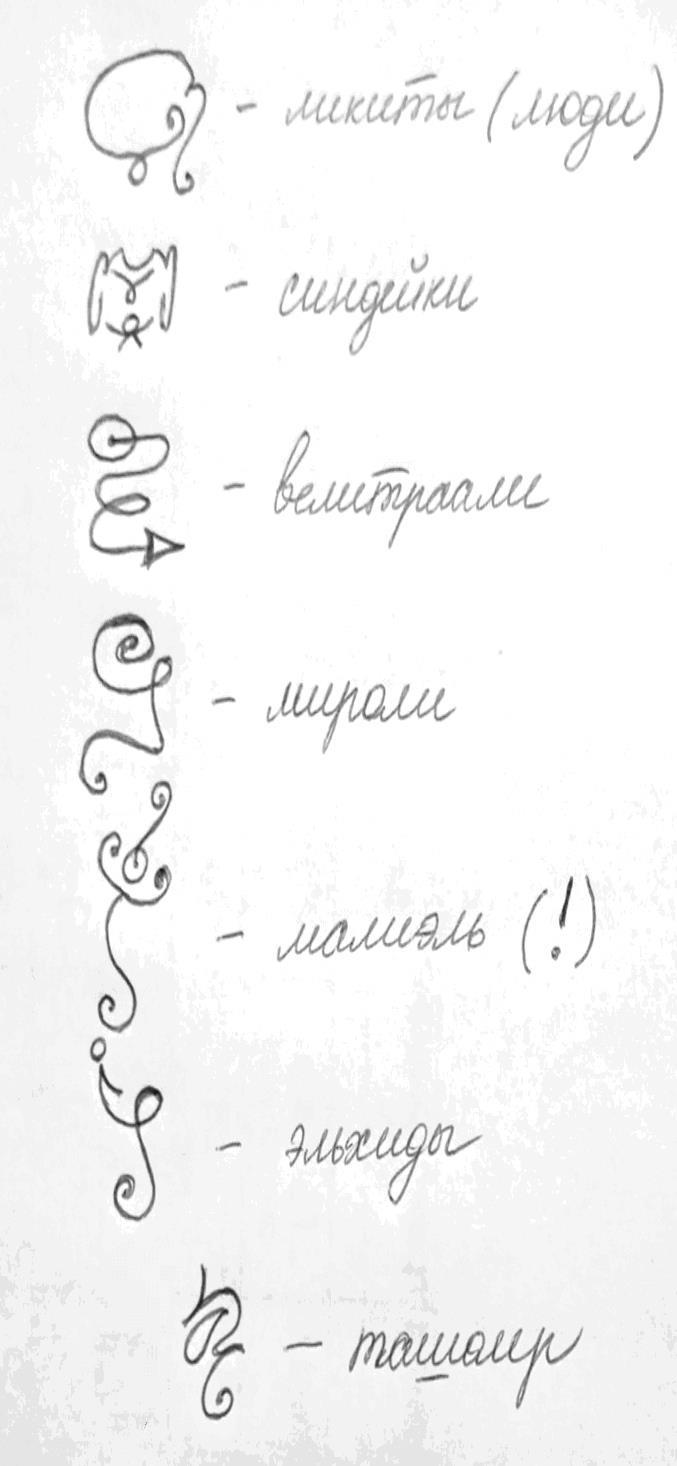 - ликиты (люди)
- синдейки
- велитраали
- мироли
- малиэль (!)
- эльхиды
- ташаир